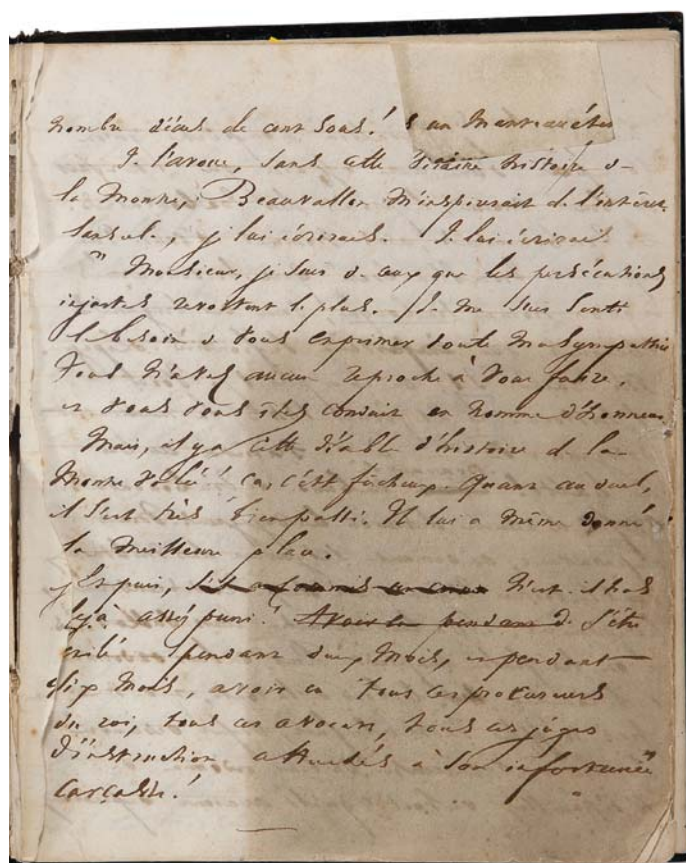 nombre d'écus de cent sous! & un
Je l'avoue, sans cette vilaine histoire de
la montre, Beauvallon m'inspirerait de l'intérêt.
je lui écrirais. Je lui écrirais
" Monsieur, je suis de ceux que les persécutions
injustes révoltent le plus. Je me suis senti
le besoin de vous exprimer toute ma sympathie
Vous n'avez aucun reproche à vous faire,
et vous vous êtes conduit en homme d'honneur
Mais, il y a cette diable d'histoire de la
montre volée! ça, c'est fâcheux. Quant au duel,
il s'est très bien passé. Il lui a même donné
la meilleure place.
Et puis, n'est-il pas
déjà assez puni! Avoir pendant d'être
pendant deux mois, et pendant
dix mois, avoir eu tous ces procureurs
du roi, tous ces avocats, tous ces juges
d'instruction attachés à son infortunée
carcasse!